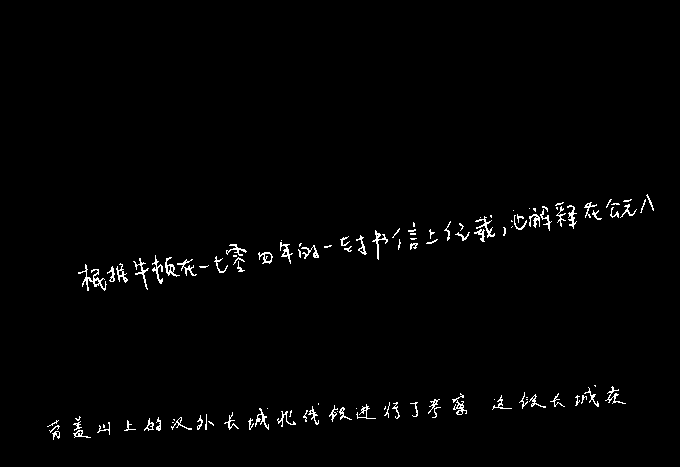 根据牛顿在一七零四年的一封书信上记载，他解释在公元八
盖山上的汉外长城北线段进行了考察 这段长城在